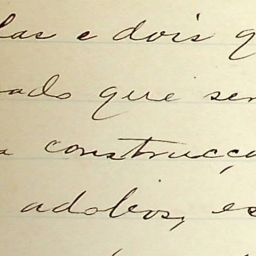 las e dois q
ado que ser
a construcça
adobos, es